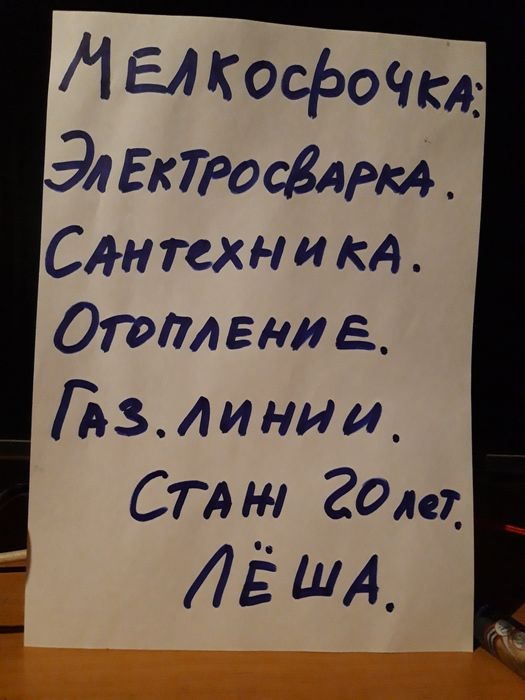 Мелкосрочка:
Электросварка.
Сантехника.
Отопление.
Газ. линии.
Стаж 20 лет.
Лёша.